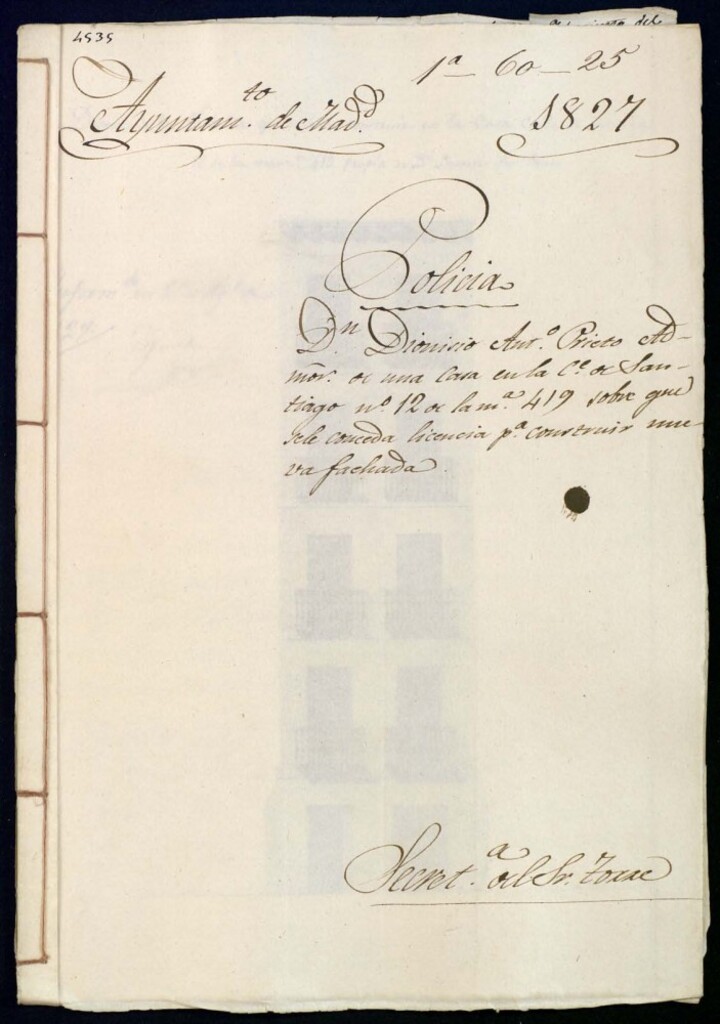 4535
1ª 60-25
Ayuntam.to de Mad.d
1827
Policia
D.n Dionisio Ant.º Prieto Ad-
mōr. de una casa en la C.e de San-
tiago nº. 12 de la m.ª 419 sobre que
se le conceda licencia p.ª construir nue-
va fachada.
Secret.ª del Sr. Torre